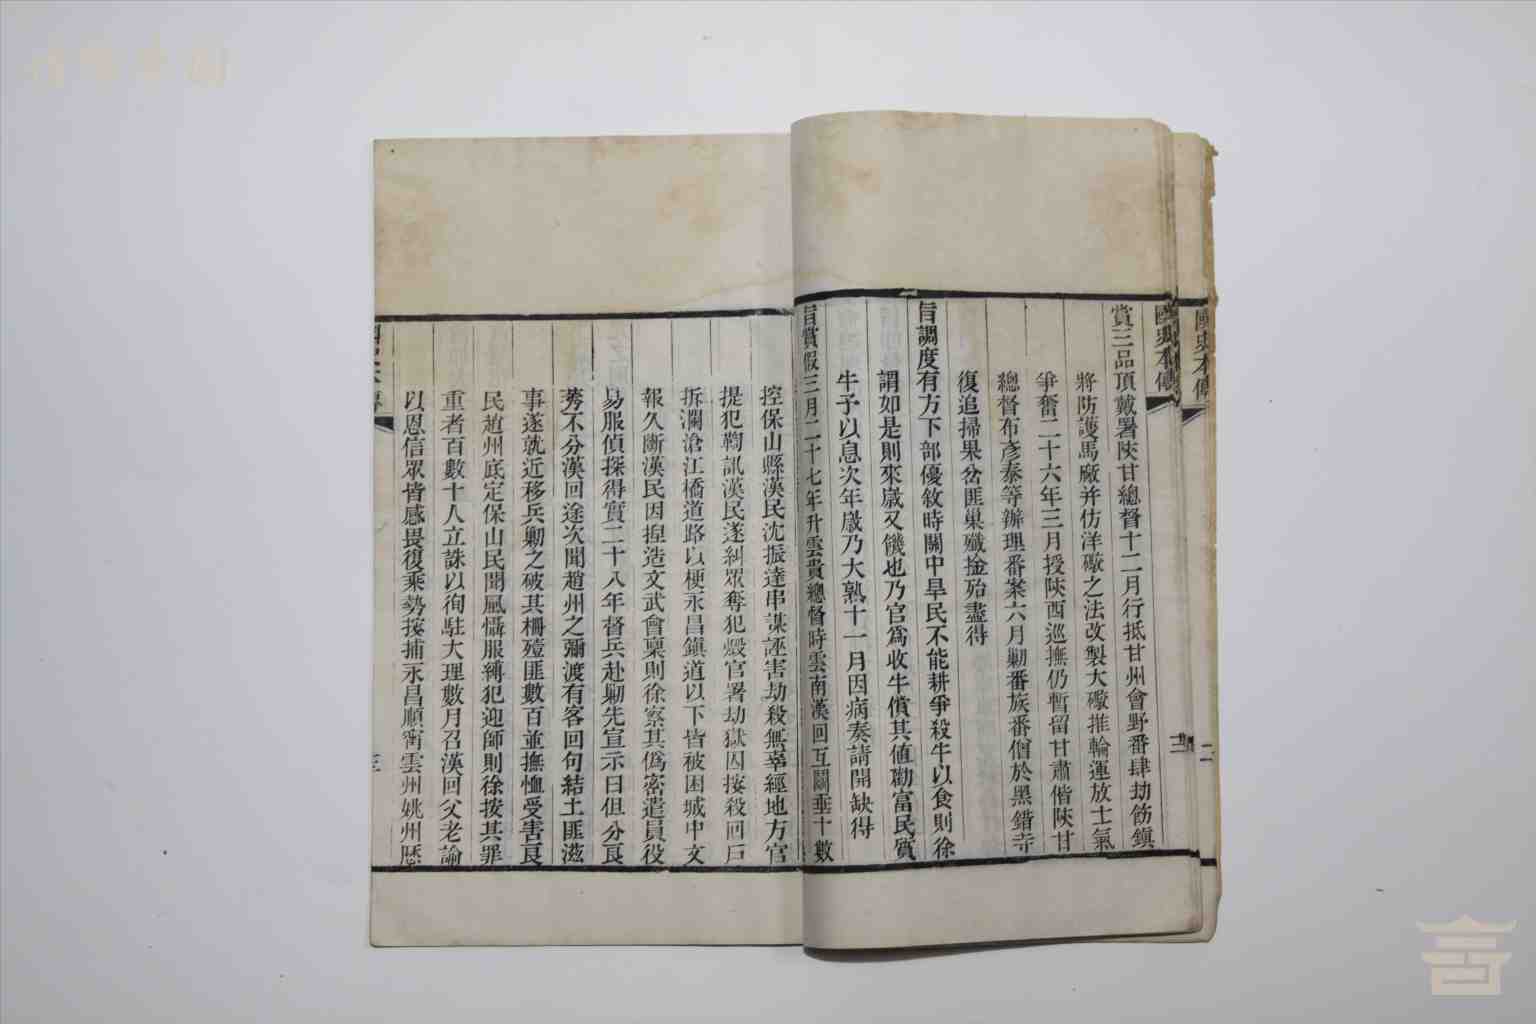 國史本傳
二
國史本傳
賞三品頂戴署陝甘總督十二月行抵甘州會野番肆劫飭鎮
將防護馬廠并仿洋礮之法改製大礮推輪運放士氣
爭奮二十六年三月授陝西巡撫仍暫留甘肅偕陝甘
總督布彥泰等辦理番案六月勦番族番僧於黑錯寺
復追掃果岔匪巢殲捡殆盡得
旨調度有方下部優敘時關中旱民不能耕爭殺牛以食則徐
謂如是則來歲又饑也乃官為收牛償其値勸富民質
牛予以息次年歲乃大熟十一月因病奏請開缺得
旨賞假三月二十七年升雲貴總督時雲南漢回互鬭垂十數
控保山縣漢民沈振達串謀誣害劫殺無辜經地方官
提犯鞫訊漢民遂糾眾奪犯燬官署劫獄囚按殺回戶
拆瀾滄江橋道路以梗永昌鎮道以下皆被困城中文
報久斷漢民因捏造文武會稟則徐察其偽密遣員役
易服偵探得實二十八年督兵赴勦先宣示曰但分良
莠不分漢回途次聞趙州之彌渡有客回句結土匪滋
事遂就近移兵勦之破其柵殪匪數百並撫恤受害良
民趙州底定保山民聞風懾服縛犯迎師則徐按其罪
重者百數十人立誅以徇駐大理數月召漢回父老諭
以恩信眾皆感畏復乘勢按捕永昌順甯雲州姚州歷
三